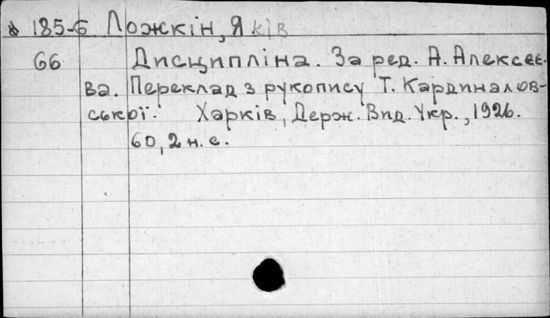 185-6 Ложкін, Яків
66 Дисципліна. За ред. А. Алексєє-
ва. Переклад з рукопису Т. Кардиналов-
ської. Харків, Держ. Вид. Укр., 1926.
60, 2 н. с.